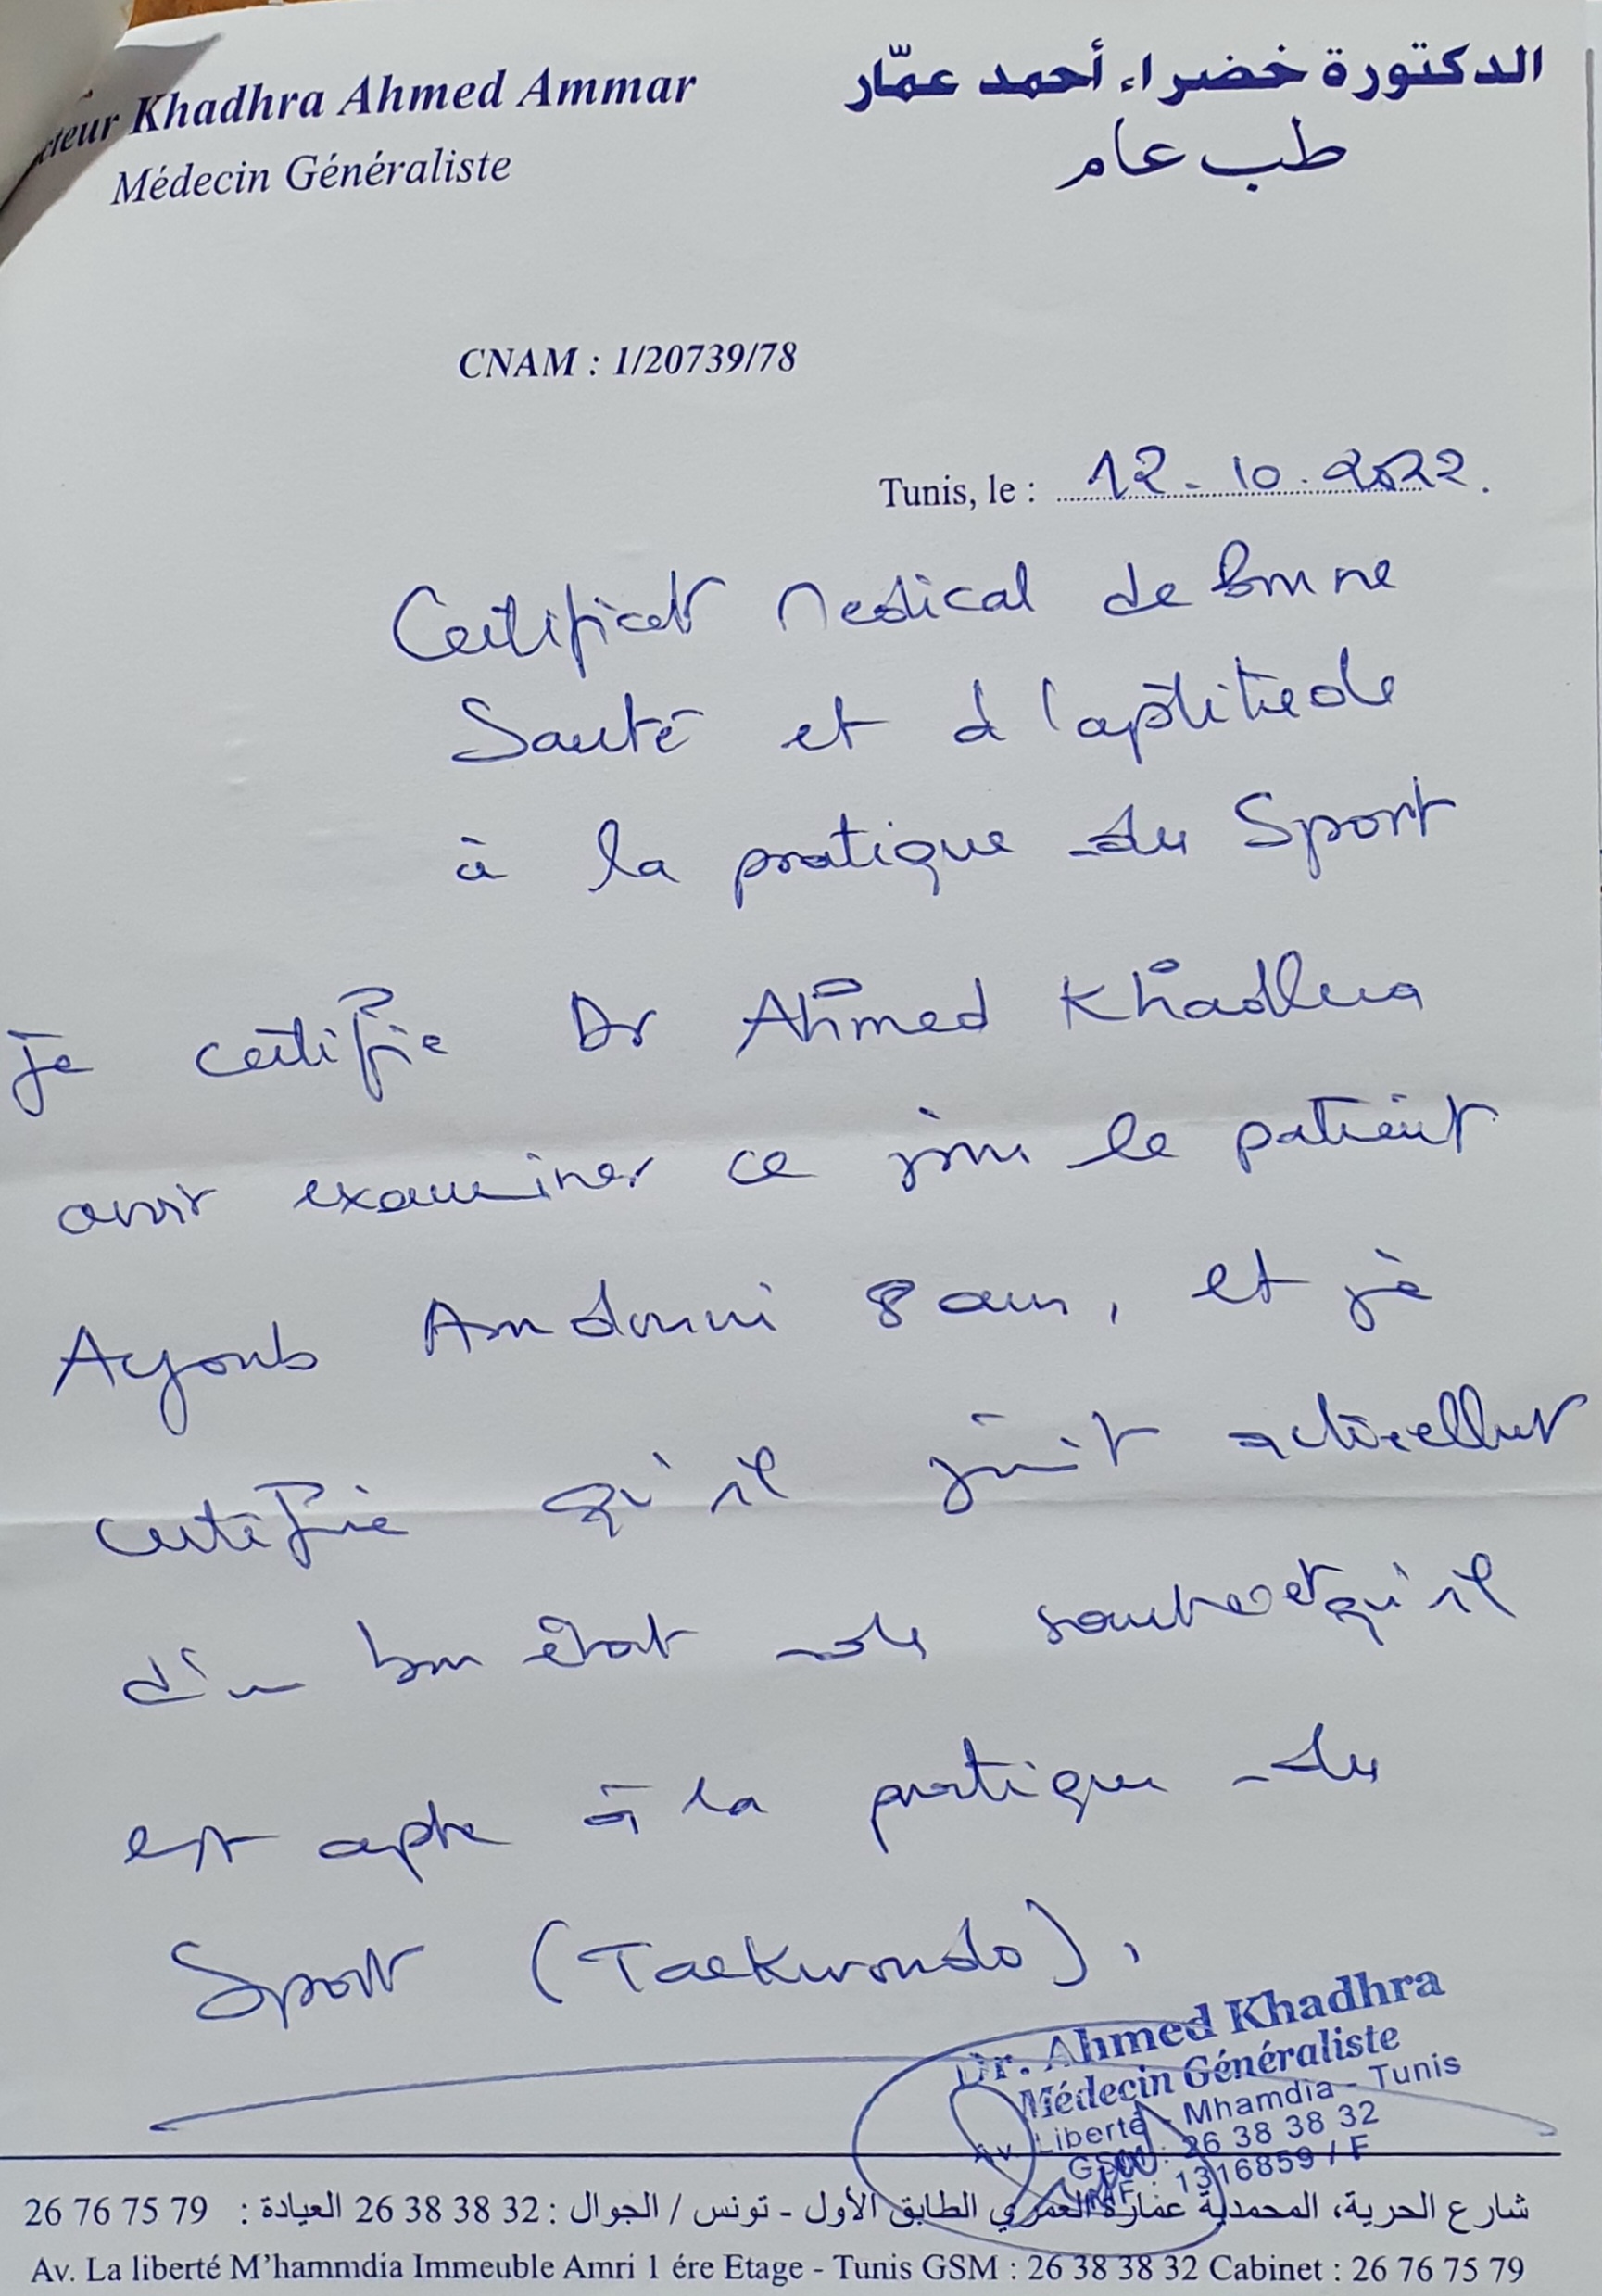 cteur Khadhra Ahmed Ammar
Médecin Généraliste
الدكتورة خضراء أحمد عمّار
طب عام
CNAM : 1/20739/78
Tunis, le : 12-10.2022.
Certificat Medical de bonne
Santé et d l'aptitude
à la pratique du Sport
je certifie Dr Ahmed Khadhra
avoir examiner ce jour le patient
Ayoub Amdouni 8 ans, et je
certifie qu'il jouit actuellemt
d'un bon état de sante et qu'il
est apte à la pratique du
Sport (Taekwondo).
Dr. Ahmed Khadhra
Médecin Généraliste
Av. Liberté - Mhamdia - Tunis
GSM : 26 38 38 32
MF : 1316859 / F
شارع الحرية، المحمدية عمارة العمري الطابق الأول - تونس / الجوال : 32 38 38 26 العيادة : 79 75 76 26
Av. La liberté M'hammdia Immeuble Amri 1 ére Etage - Tunis GSM : 26 38 38 32 Cabinet : 26 76 75 79